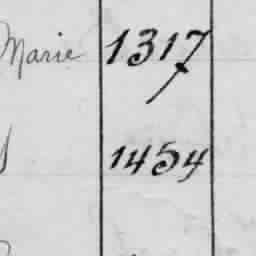 Marie 1317
1454